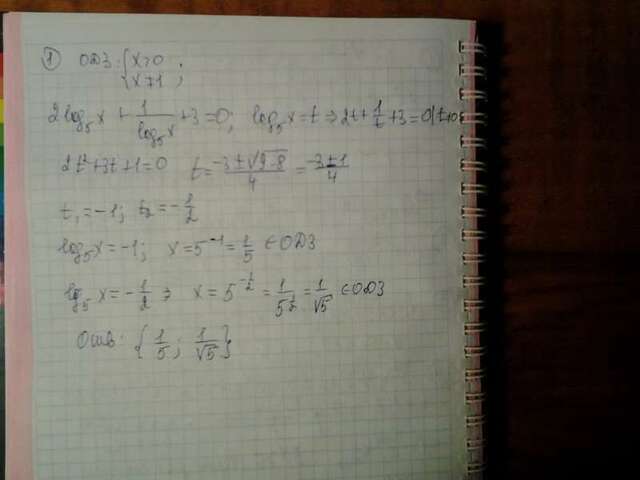 1 ОДЗ: { x>0 x≠1 ;
2log₅x + 1/log₅x + 3 = 0; log₅x = t ⇒ 2t + 1/t + 3 = 0 | t≠0
2t² + 3t + 1 = 0 t = (-3 ± √(9-8))/4 = (-3 ± 1)/4
t₁ = -1; t₂ = -1/2
log₅x = -1; x = 5⁻¹ = 1/5 ∈ ОДЗ
log₅x = -1/2 ⇒ x = 5^(-1/2) = 1/5^(1/2) = 1/√5 ∈ ОДЗ
Отв: { 1/5 ; 1/√5 }